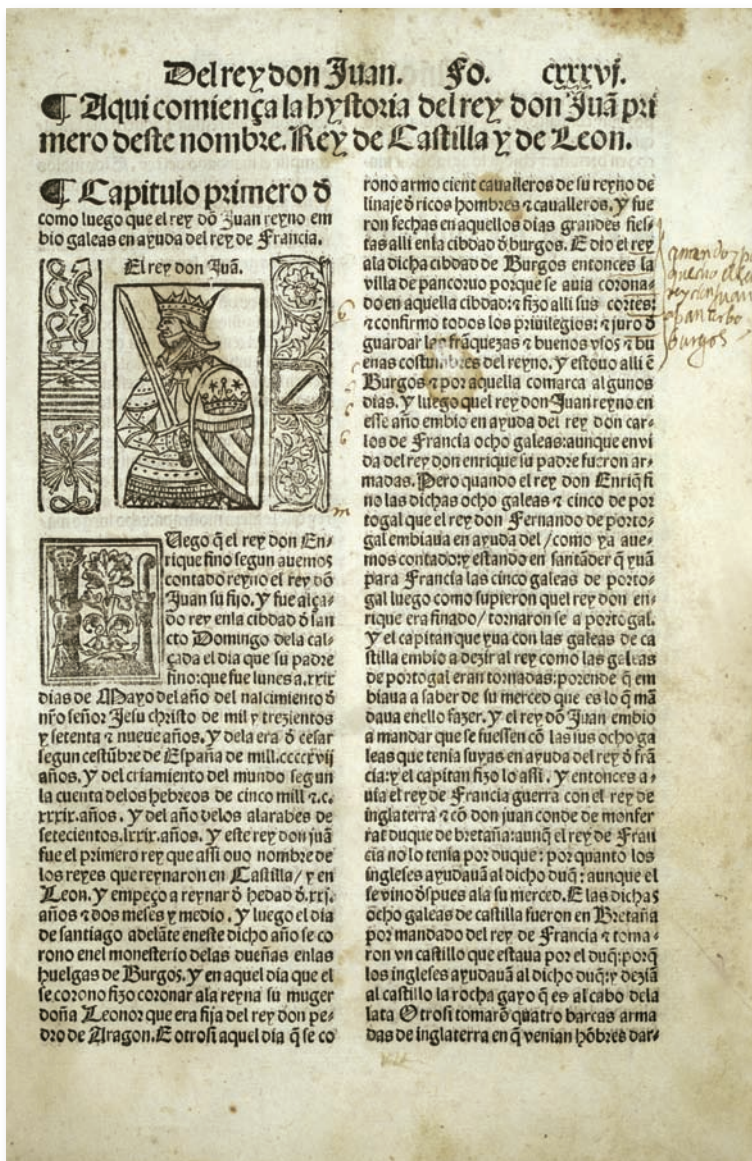 Del rey don Juan. Fo. cxxxvj.
¶ Aqui comiença la hystoria del rey don Juã pri
mero deste nombre. Rey de Castilla y de Leon.
¶ Capitulo primero đ
como luego que el rey dõ Juan reyno em
bio galeas en ayuda del rey de Francia.
El rey don Juã.
Luego q̃ el rey don En-
rique fino segun auemos
contado reyno el rey dõ
Juan su fijo. Y fue alça-
do rey enla cibdad đ san
cto Domingo dela cal-
çada el dia que su padre
fino: que fue lunes a .xxix
dias de Mayo del año del nascimiento đ
nr̃o señor Jesu christo de mil y trezientos
y setenta & nueue años. Y dela era đ cesar
segun costũbre de España de mill.ccccxvij
años. Y del criamiento del mundo segun
la cuenta delos hebreos de cinco mill &.c.
xxxix. años. Y del año delos alarabes de
setecientos.lxxix. años. Y este rey don juã
fue el primero rey que assi ouo nombre de
los reyes que reynaron en Castilla/ y en
Leon. Y empeço a reynar đ hedad đ.xxj.
años & dos meses y medio. Y luego el dia
de santiago adelãte eneste dicho año se co
rono enel monesterio delas dueñas enlas
huelgas de Burgos. Y en aquel dia que el
se corono fizo coronar ala reyna su muger
doña Leonor que era fija del rey don pe-
dro de Aragon. E otrosi aquel dia q̃ se co
rono armo cient caualleros de su reyno de
linaje đ ricos hombres & caualleros. Y fue
ron fechas en aquellos dias grandes fies-
tas alli enla cibdad đ burgos. E dio el rey
ala dicha cibdad de Burgos entonces la
villa de pancoruo porque se auia corona-
do en aquella cibdad: & fizo alli sus cortes:
& confirmo todos los priuilegios: & juro đ
guardar las frãquezas & buenos vsos & bu
enas costumbres del reyno. Y estouo alli ẽ
Burgos & por aquella comarca algunos
dias. Y luego quel rey don Juan reyno en
esse año embio en ayuda del rey don car-
los de Francia ocho galeas: aunque en vi
da del rey don enrique su padre fueron ar-
madas. Pero quando el rey don Enriq̃ fi
no las dichas ocho galeas & cinco de por
togal que el rey don Fernando de porto-
gal embiaua en ayuda del/ como ya aue-
mos contado: y estando en santãder q̃ yuã
para Francia las cinco galeas de porto-
gal luego como supieron quel rey don en-
rique era finado/ tornaron se a portogal.
Y el capitan que yua con las galeas de ca
stilla embio a dezir al rey como las galeas
de portogal eran tornadas: porende q̃ em
biaua a saber de su merced que es lo q̃ mã
daua enello fazer. Y el rey dõ Juan embio
a mandar que se fuessen cõ las sus ocho ga
leas que tenia suyas en ayuda del rey đ frã
cia: y el capitan fizo lo assi. Y entonces a-
uia el rey de Francia guerra con el rey de
inglaterra & cõ don juan conde de monfer
rat duque de bretaña: aunq̃ el rey de Fran
cia no lo tenia por duque: por quanto los
ingleses ayudauã al dicho duq̃: aunque el
se vino đspues ala su merced. E las dichas
ocho galeas de castilla fueron en Bretaña
por mandado del rey de Francia & toma-
ron vn castillo que estaua por el duq̃: porq̃
los ingleses ayudauã al dicho duq̃: y deziã
al castillo la rocha gayo q̃ es al cabo dela
lata Otrosi tomarõ quatro barcas arma
das de inglaterra en q̃ venian hõbres dar-
rey don juan
burgos